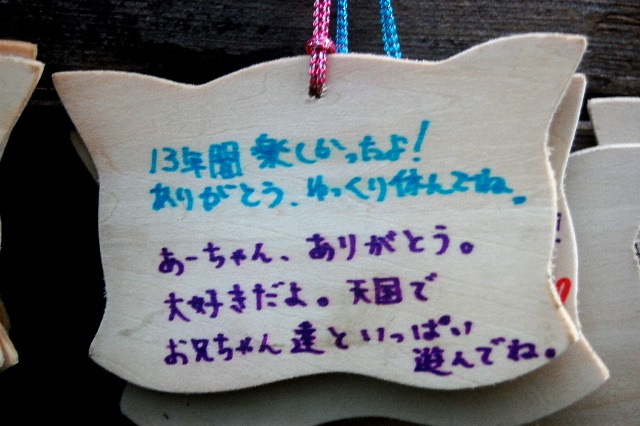 13年間 楽しかったよ!
ありがとう、ゆっくり休んでね。
あーちゃん、ありがとう。
大好きだよ。天国で
お兄ちゃん達といっぱい
遊んでね。